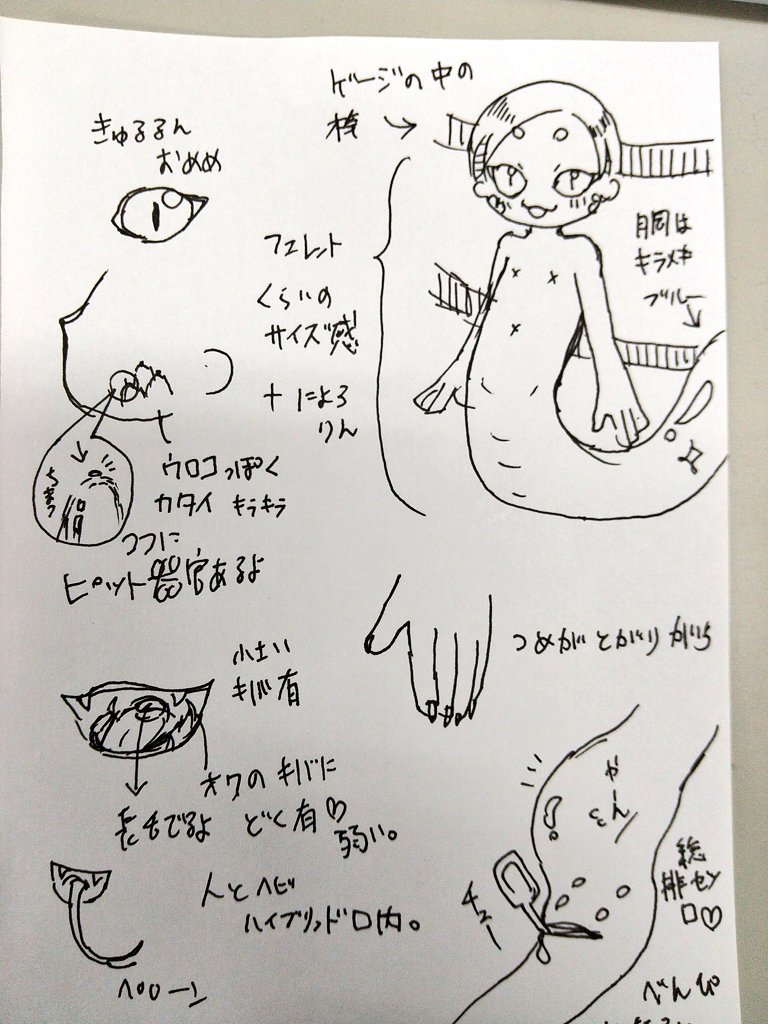 きゅるるん
おめめ
ゲージの中の
桟
フェレット
くらいの
サイズ感
+ にょろ
りん
胴は
キラメキ
ブルー
ウロコっぽく
カタイ キラキラ
ココに
ピット器官あるよ
小さい
キバ有
オクの キバに
どく有♡
弱い。
長い舌でるよ
人とヘビ
ハイブリッド口内。
ペローン
つめが とがりがち
やん
チュー
総
排セツ
口♡
べんぴ